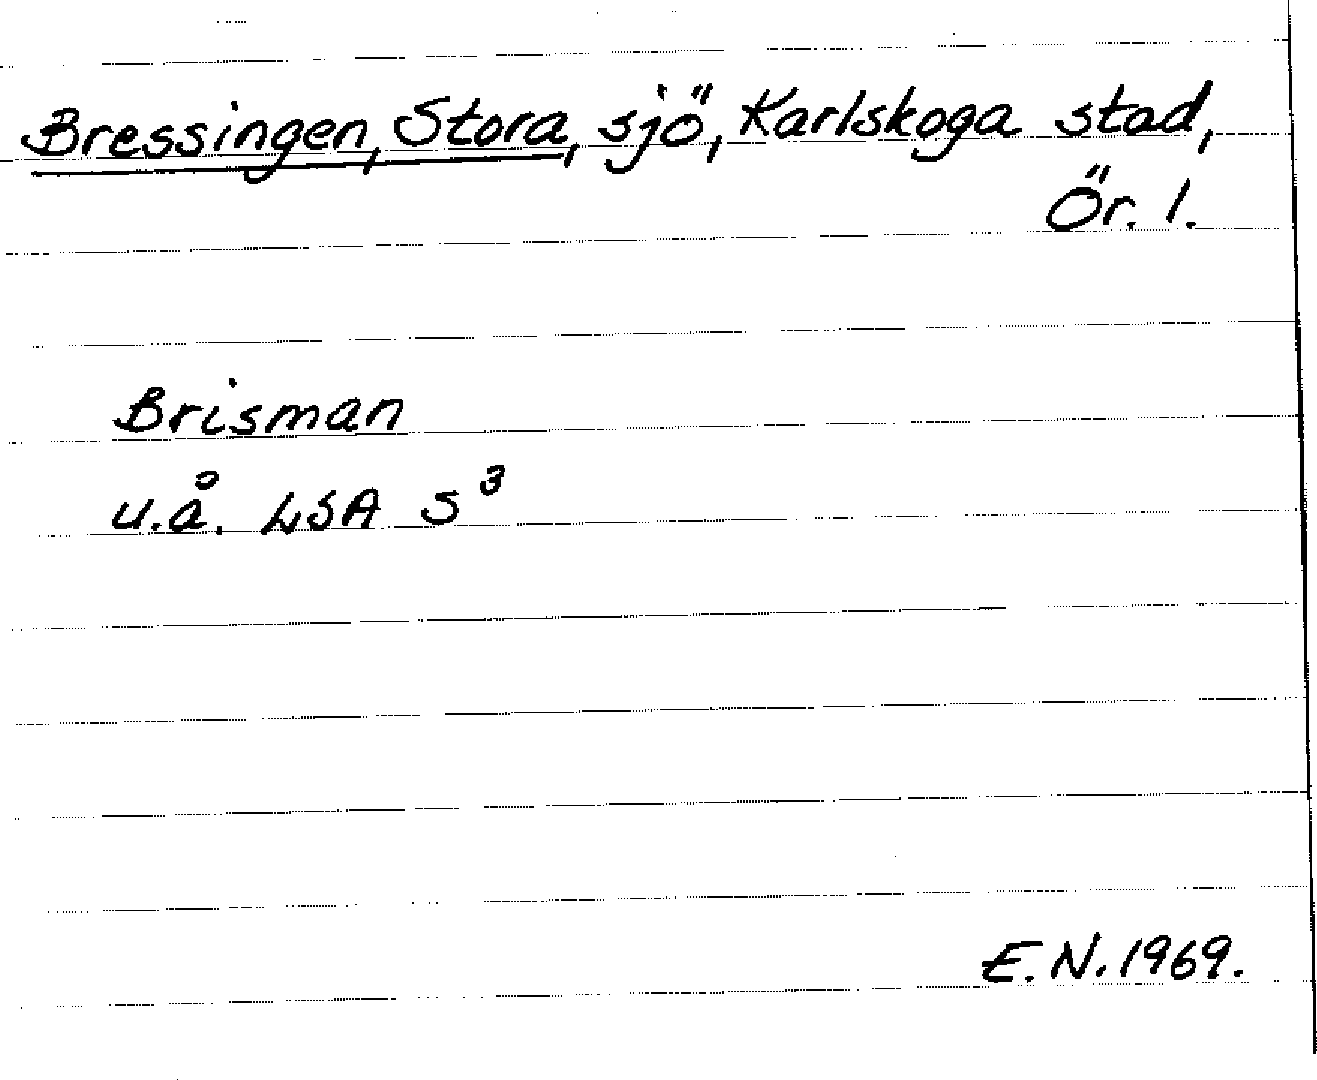 Bressingen, Stora, sjö, Karlskoga stad,
Ör. l.
Brisman
u.å. LSA S³
E.N. 1969.